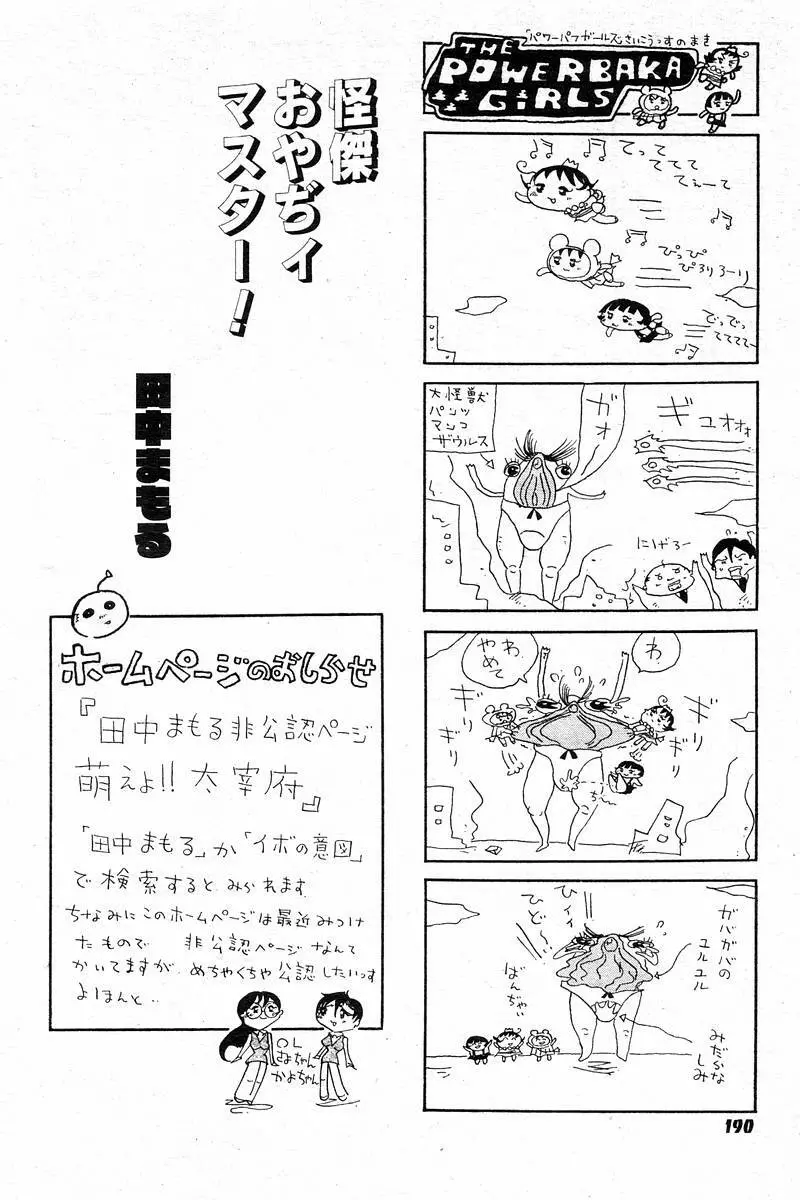 「パワーパフガールズ」さいこうっすのまき
THE
POWERBAKA
GIRLS
てってて
てててて
てぇーて
ぴっぴ
ぴろりろーり
でっでっ
ててててー
大怪獣
パンツ
マンコ
ザウルス
ガォ
ギュオオォ
にげろー
わ
わ
やめて
ギリギリ
ギリギリ
ち〜
ガバガバの
ユルユル
ヒィィ
ひど〜!
ばんちゃい
みだらな
しみ
190
怪傑
おやぢィ
マスター!
田中まもる
ホームページのおしらせ
『田中まもる非公認ページ
萌えよ!!太宰府』
「田中まもる」か「イボの意図」
で検索すると、みられます
ちなみにこのホームページは最近みつけ
たもので 非公認ページなんて
かいてますが、めちゃくちゃ公認したいっす
よほんと..
OL
さよちゃん
かよちゃん